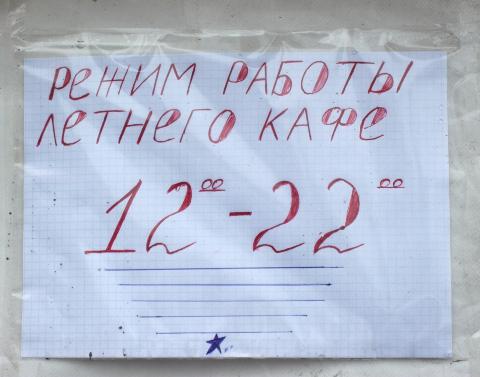 РЕЖИМ РАБОТЫ
ЛЕТНЕГО КАФЕ
12⁰⁰-22⁰⁰